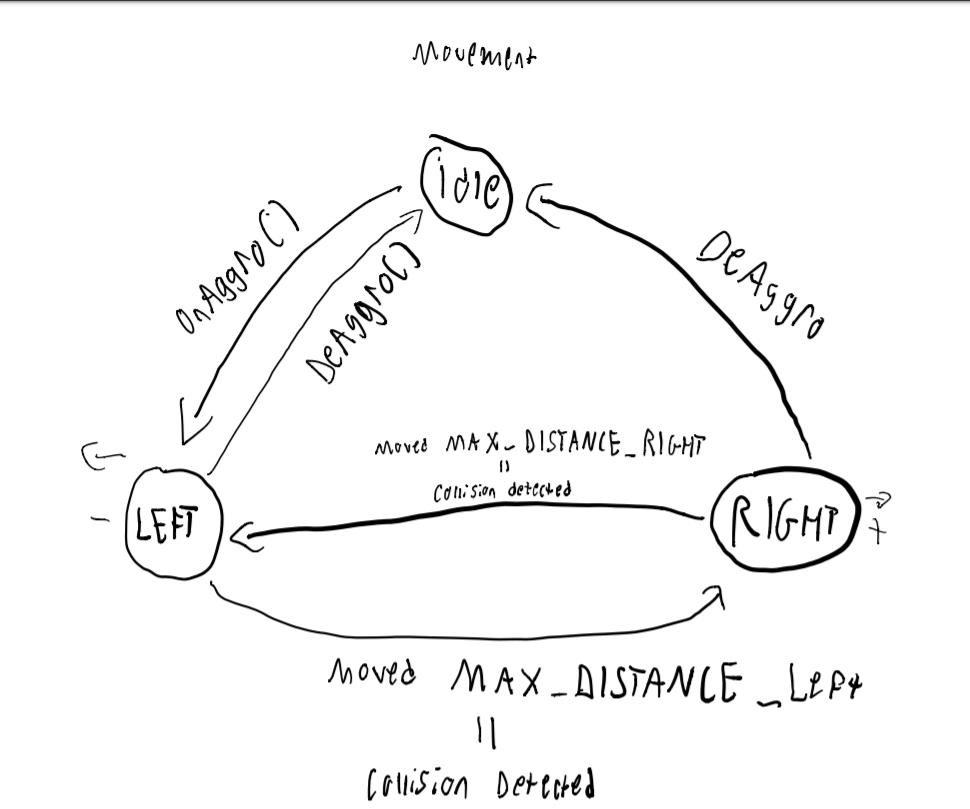 Movement
idle
OnAggro()
DeAggro()
DeAggro
Moved MAX_DISTANCE_RIGHT
||
Collision detected
LEFT
-
RIGHT
+
Moved MAX_DISTANCE_Left
||
Collision Detected